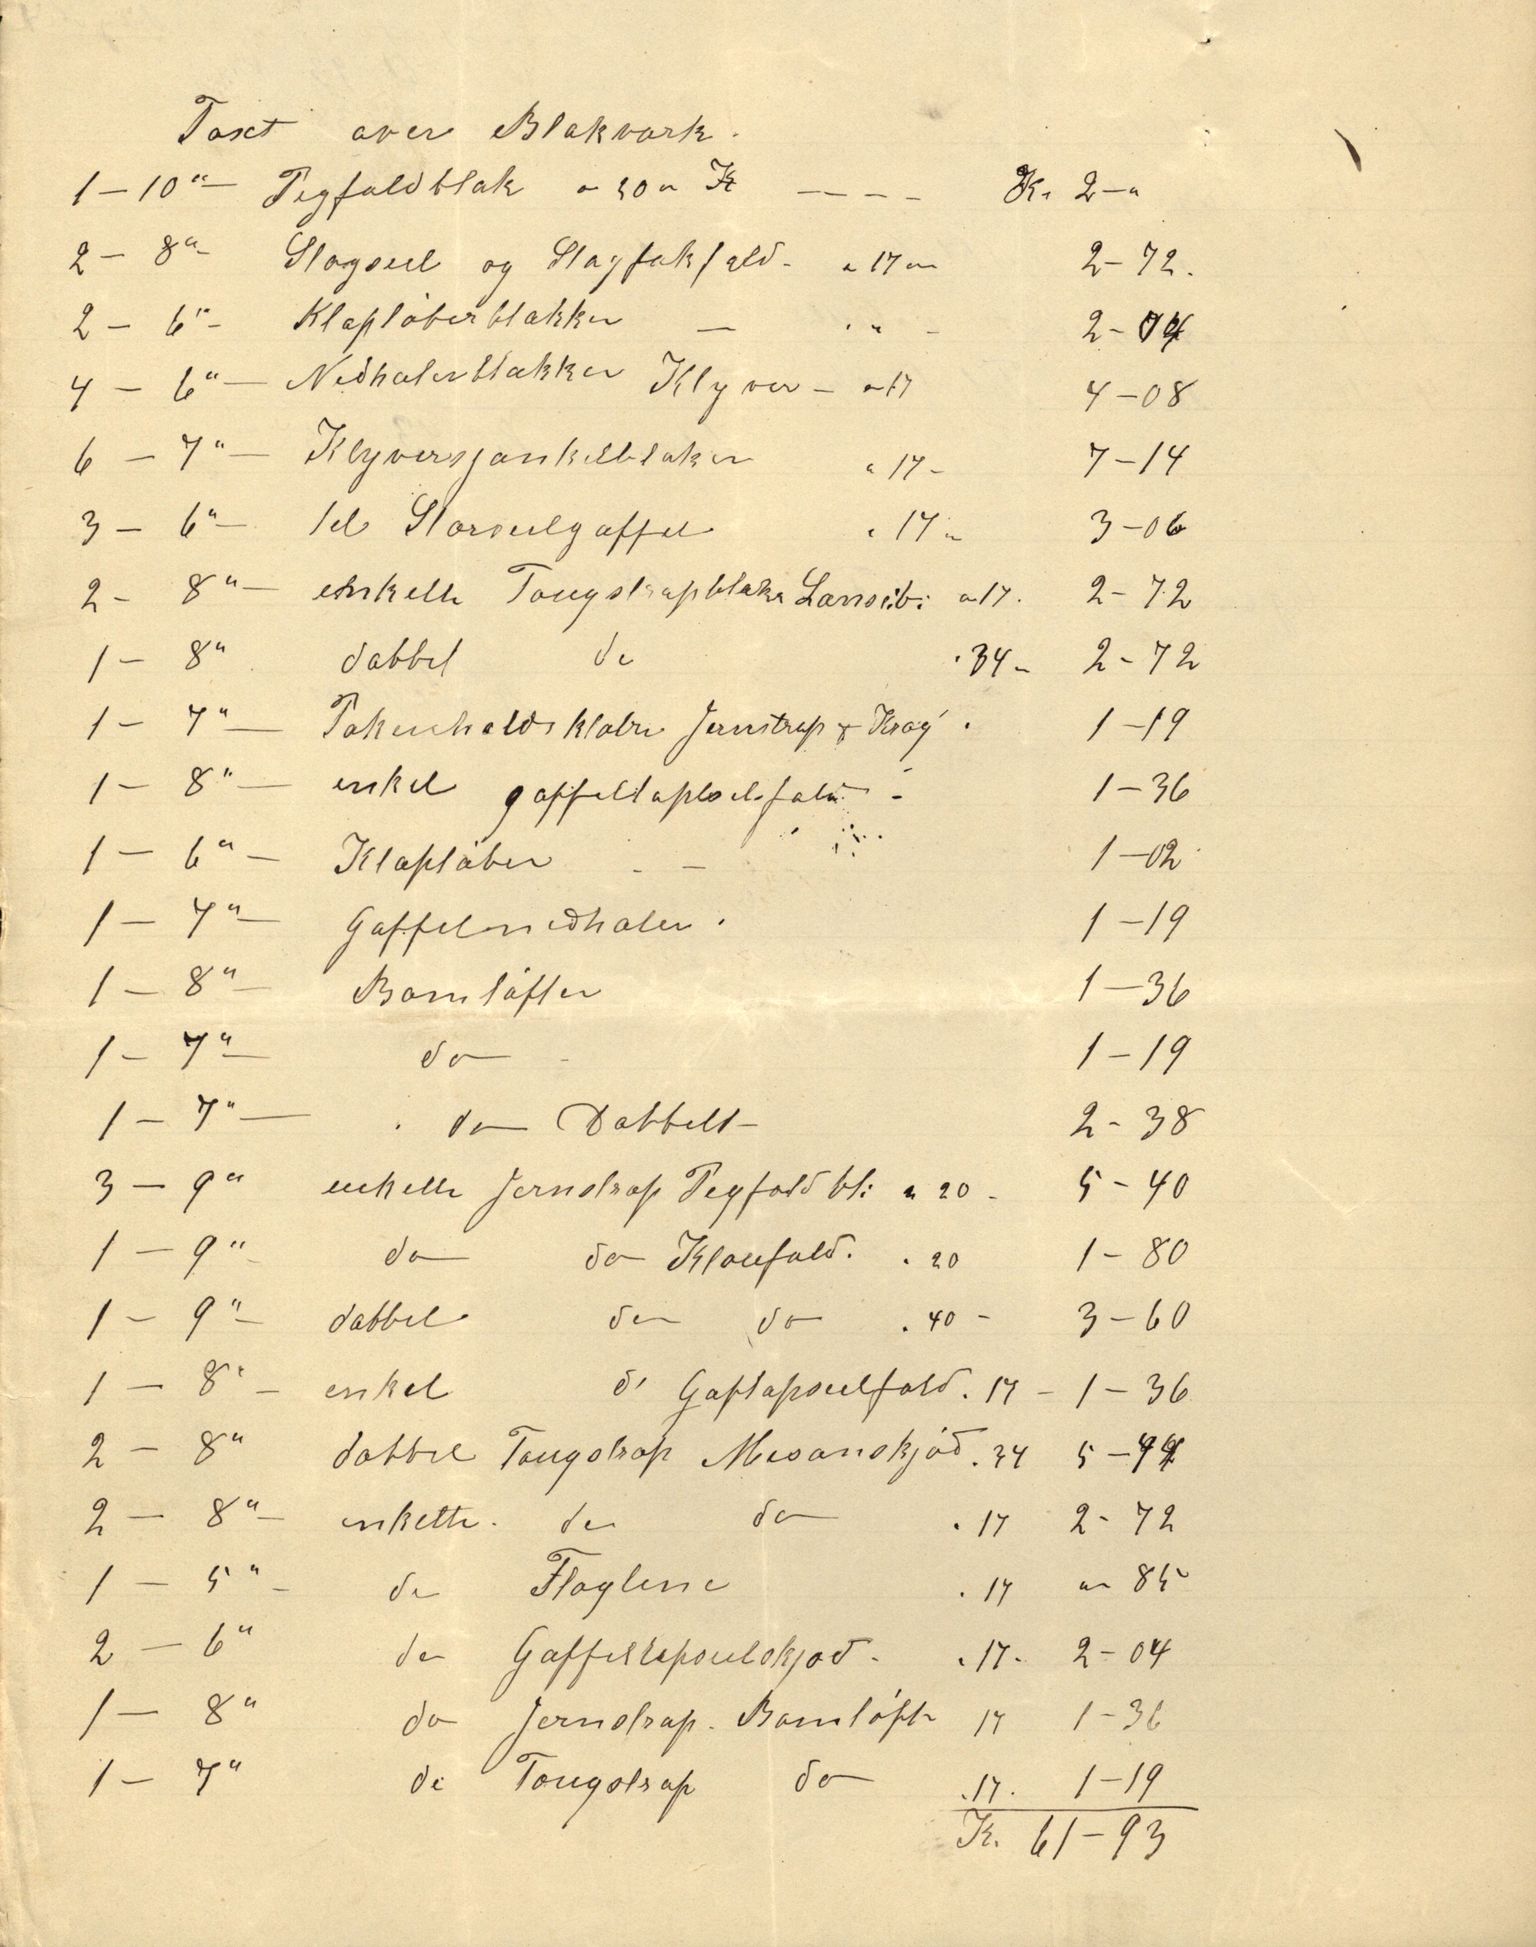 Taxt over Blokværk.
1 – 10" – Pegfaldblok a 20 " – – – – Kr. 2 – "
2 – 8" – Stagseil og Stagfokfald – a 17 " 2 – 72.
2 – 6" – Klapløberblokker – " " – 2 – 04
4 – 6" – Nedhalerblokker Klyver – a 17 4 – 08
6 – 7" – Klyverskjønkelblokker " 17 – 7 – 14
3 – 6" – til Storseilgaffel " 17 " 3 – 06
2 – 8" – enkelte Tougstropbloke a 17. 2 – 72
1 – 8" dobbel do " 34 – 2 – 72
1 – 7" – Jernstrop & Krog . 1 – 19
1 – 8" – enkel gaffeltopseilsfald – 1 – 36
1 – 6" – Klapløber – – 1 – 02
1 – 7" – Gaffelnedhaler . 1 – 19
1 – 8" – Bomløfter 1 – 36
1 – 7" – do – 1 – 19
1 – 7" – do Dobbelt – 2 – 38
3 – 9" enkelte Jernstrop Pegfald bl: a 20 – 5 – 40
1 – 9" – do do Kloufald. " 20 1 – 80
1 – 9" – dobbel do do " 40 – 3 – 60
1 – 8" – enkel do Gaftopseilfald . 17 – 1 – 36
2 – 8" dobbel Tougstrop Mesanskjød . 34 5 – 44
2 – 8" – enkelte. do do . 17 2 – 72
1 – 5" – do Flagline . 17 " 85
2 – 6" do Gaffeltopseilskjød – " 17 – 2 – 04
1 – 8" do Jernstrop. Bomløft 17 1 – 36
1 – 7" do Tougstrop do . 17. 1 – 19
Kr. 61 – 93